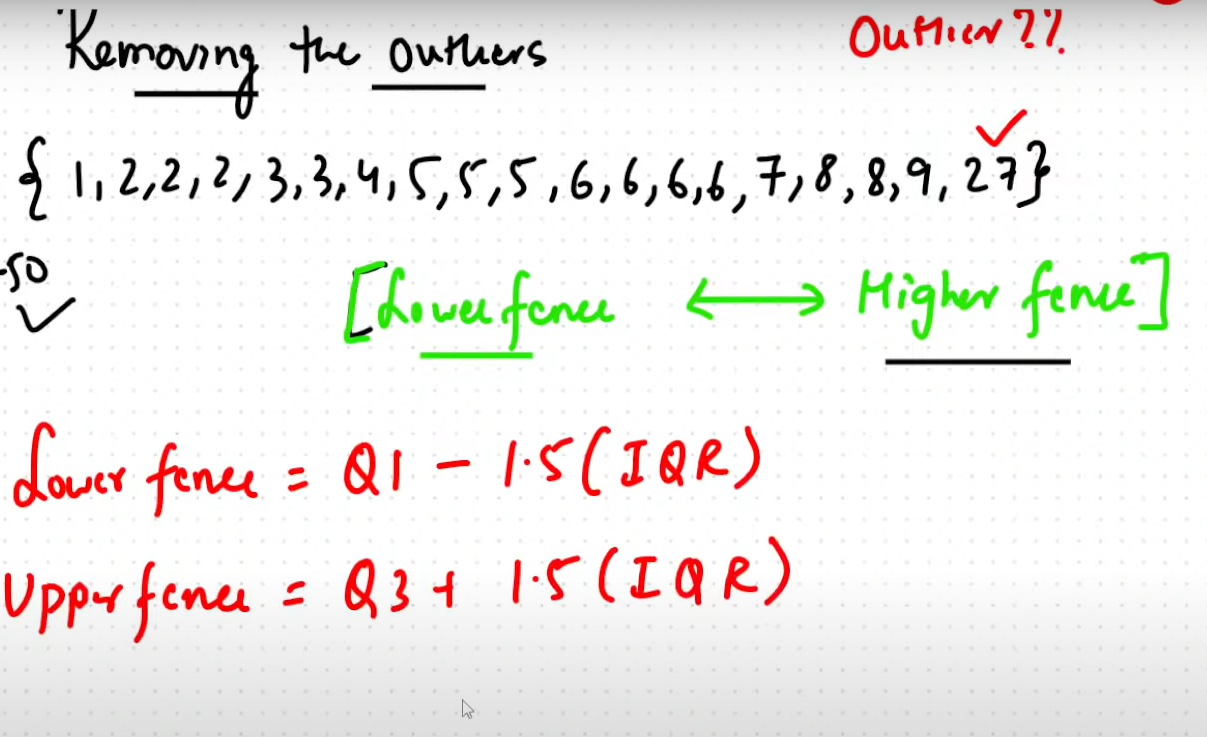 Removing the outliers
Outlier??
{1,2,2,2,3,3,4,5,5,5,6,6,6,6,7,8,8,9,27}
-50
[Lower fence ↔ Higher fence]
Lower fence = Q1 - 1.5(IQR)
Upper fence = Q3 + 1.5(IQR)